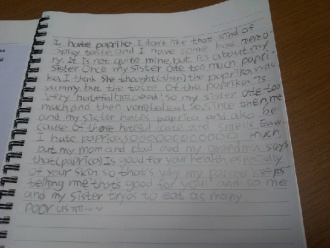 I hate paprika I don't like that kind of
spicy taste and I have some bad memo
ry. It is not quite mine, but it's about my
sister. Once my sister ate too much papri-
ka I think she thought that the paprika was
yummy but the taste of the paprika is
very so my sister ate too
much and she vomited so since then me
and my sister hates paprika and also be
cause of there taste and
I hate paprika so much
but my mom and dad and my Grandma says
that (paprica) is good for your health, especially
of your skin so that's why my parents keeps
telling me that's good for your and so me
and my sister trys to eat as many
Poor us